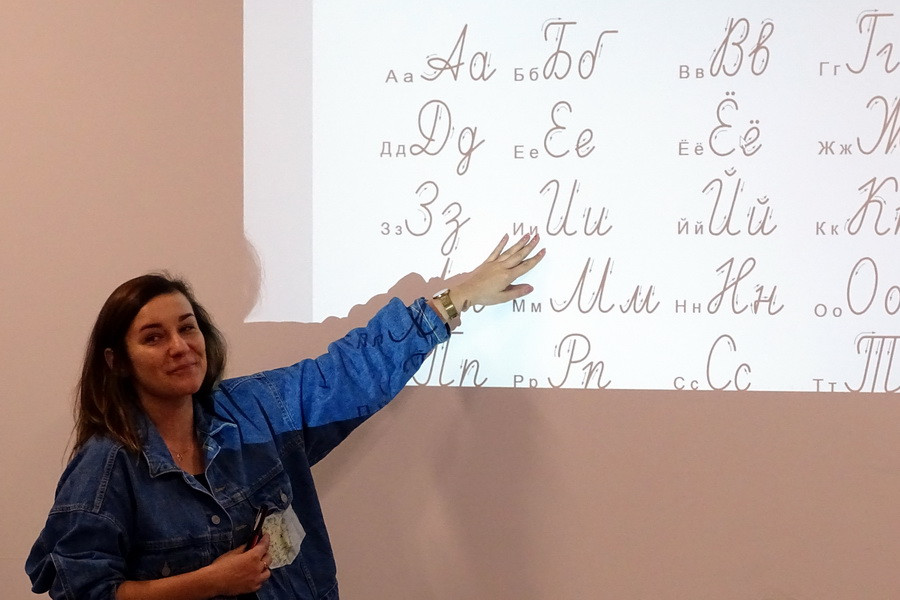 Аа Аа Бб Бб Вв Вв Гг Гг
Дд Дд Ее Ее Ёё Ёё Жж Ж
Зз Зз Ии Ии Йй Йй Кк Кк
Мм Мм Нн Нн Оо Оо
Пп Рр Рр Сс Сс Тт Т